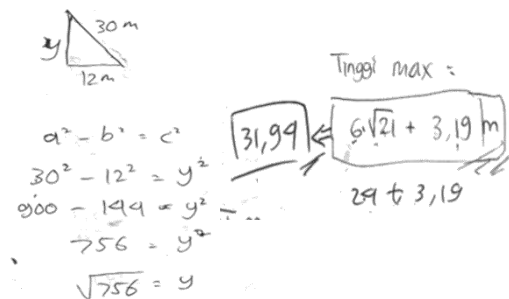 30 m
y
12 m
a² - b² = c²
30² - 12² = y²
900 - 144 = y²
756 = y²
√756 = y
Tinggi max :
31,94 ⇐ 6√21 + 3,19 m
29 + 3,19